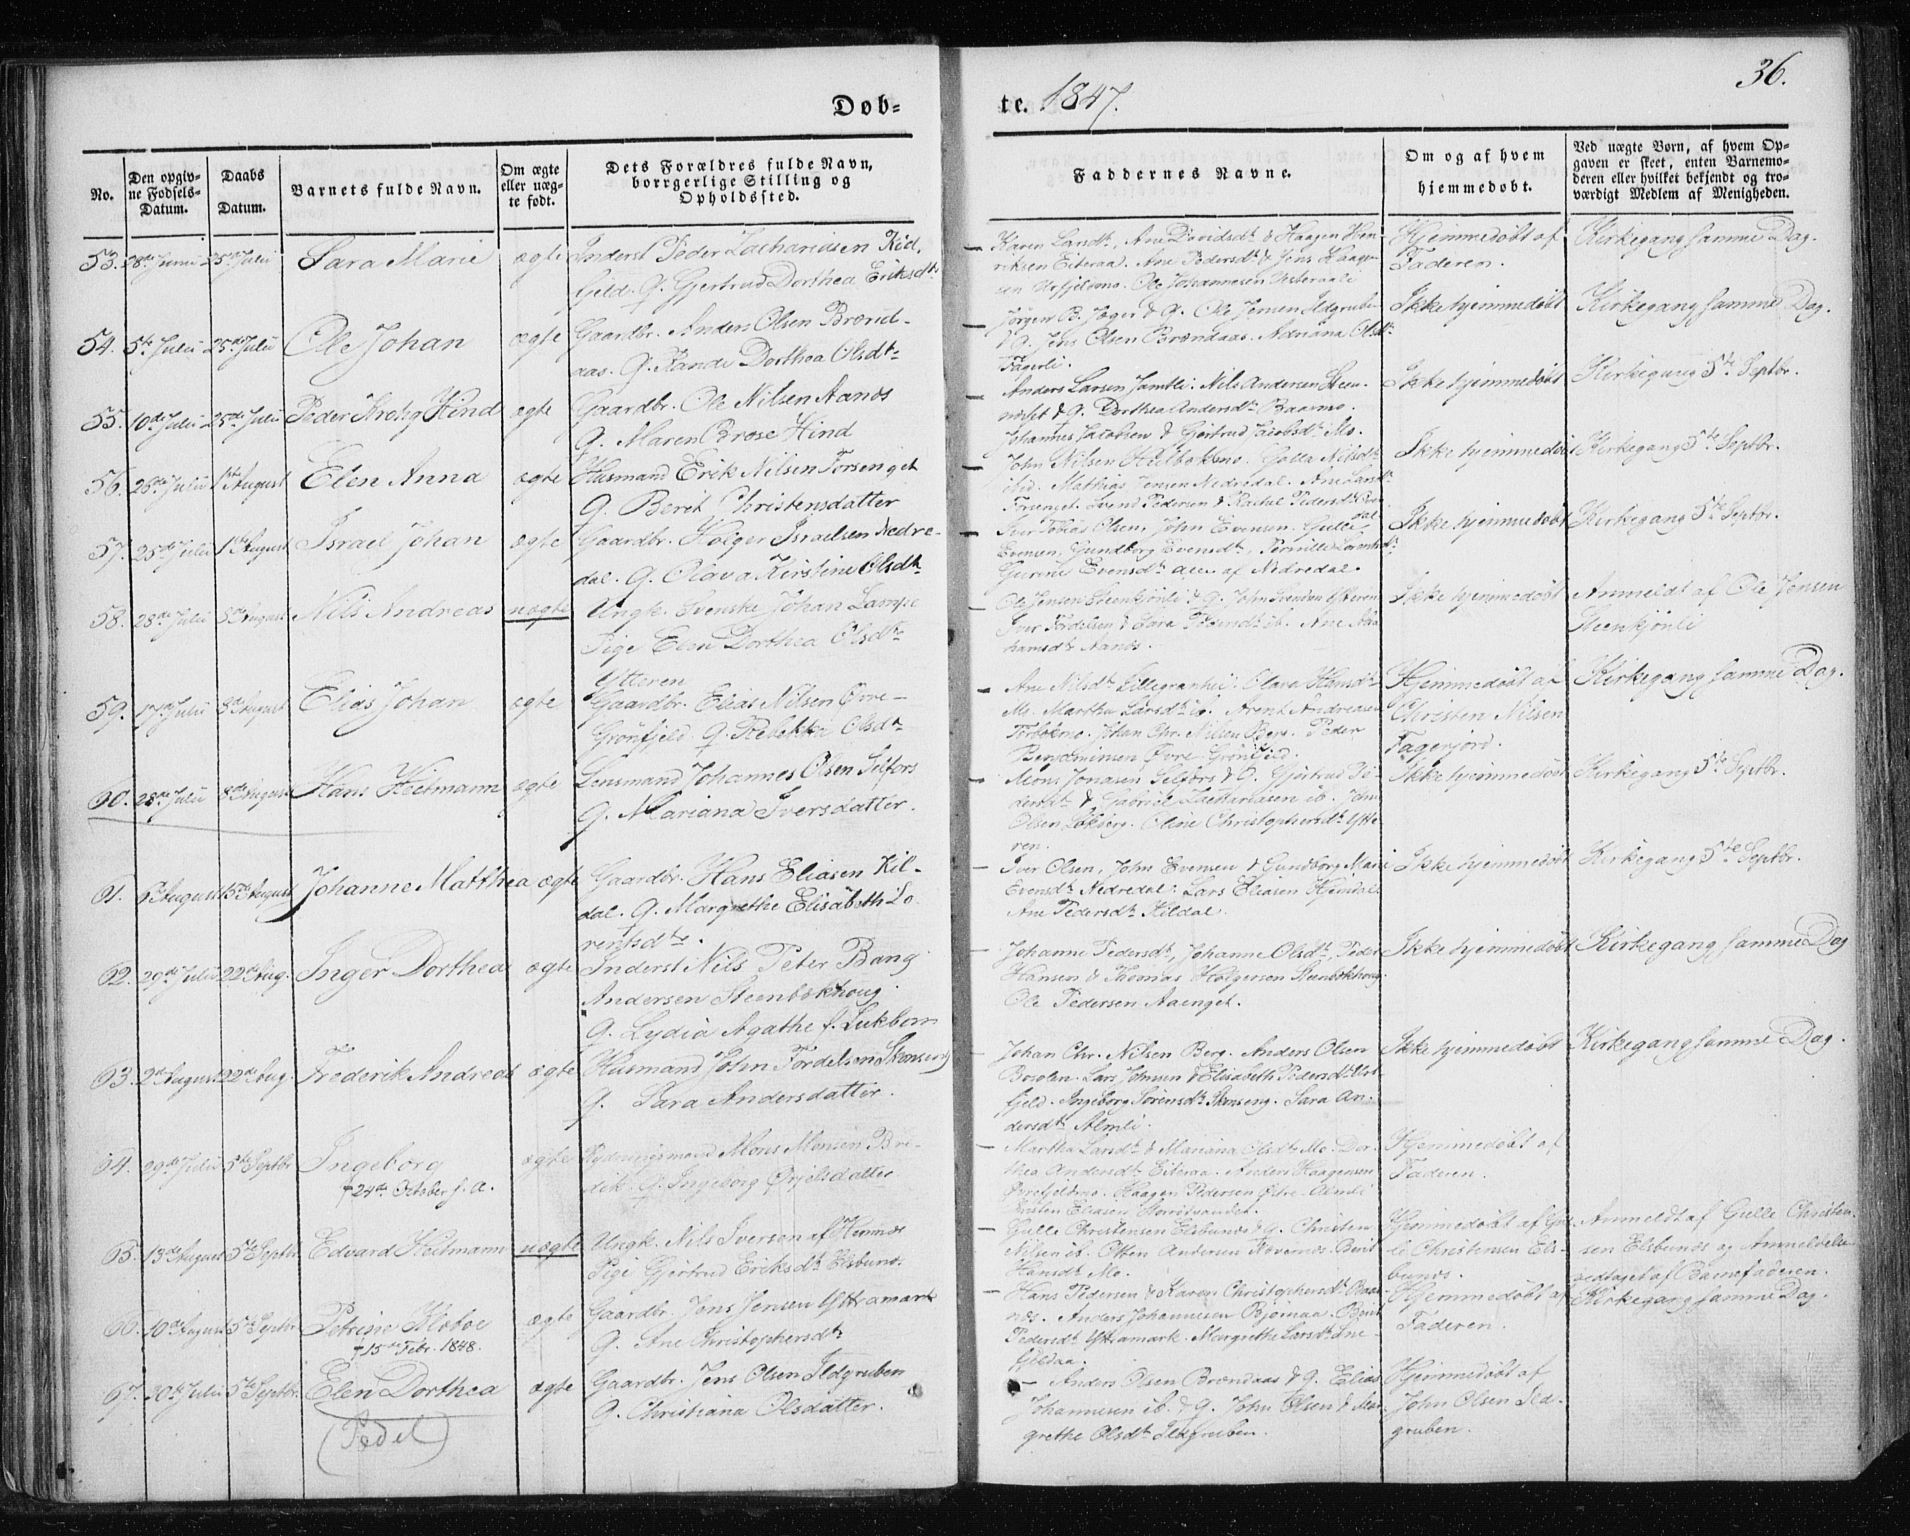 36.
Døb-
te. 1847.
No.
Den opgiv-
ne Fødsels-
Datum.
Daabs
Datum.
Barnets fulde Navn.
Om ægte
eller uæg-
te født.
Dets Forældres fulde Navn,
borrgerlige Stilling og
Opholdssted.
Faddernes Navne.
Om og af hvem
hjemmedøbt.
Ved uægte Børn, af hvem Op-
gaven er skeet, enten Barnemo-
deren eller hvilket bekjendt og tro-
værdigt Medlem af Menigheden.
53. 28de Juni 25de Julii Sara Marie ægte Inderst Peder Zachariasen Kid,
fjeld. G. Gjertrud Dorthea Eriksdtr
Karen Larsdtr, Ane Davidsdtr & Haagen Hen-
riksen Eiteraa. Ane Pedersdtr & Jens Haagen-
sen Urfjeldmo. Ole Johannesen
Hjemmedøbt af
Faderen.
Kirkegang samme Dag.
54. 5te Julii 25de Julii Ole Johan ægte Gaardbr. Anders Olsen Brænd-
aas. G. Dorthea Olsdtr
Jørgen B. Jæger & G. Ole Jensen Ildgruben
& G. Jens Olsen Brændaas. Adriana Olsdtr
Fagerli.
Ikke hjemmedøbt
Kirkegang samme Dag.
55. 10de Julii 25de Julii Peder Hind ægte Gaardbr. Ole Nilsen Aanæs
G. Maren Brose Hind
Anders Larsen Jamtli. Nils Andersen Steen-
næset & G. Dorthea Andersdtr Baasmo.
Johannes Jacobsen & Gjertrud Jacobsdtr Mo.
Ikke hjemmedøbt
Kirkegang 5te Septbr.
56. 26de Julii 1ste August Elen Anna ægte Husmand Erik Nilsen Forsenget
G. Beret Christensdatter
John Nilsen Nilsdtr
ibid. Mathias Jensen Nedredal. Ane Larsdtr
Forsenget. Svend Pedersen & Rachel Pedersdtr
Ikke hjemmedøbt
Kirkegang 5te Septbr.
57. 25de Julii 1ste August Israel Johan ægte Gaardbr. Holger Israelsen Nedre-
dal. G. Olava Kirstine Olsdtr
Iver Tobias Olsen, John Evensen, Gulle
Evensen, Gundborg Evensdtr, Pernille Lorentsdtr
Gurine Evensdtr alle af Nedredal.
Ikke hjemmedøbt
Kirkegang 5te Septbr.
58. 28de Julii 8de August Nils Andreas uægte Ungk. Svenske Johan Lampe
Pige Elen Dorthea Olsdtr
Ytteren
Ole Jensen Steenkjønli & G. John Svendsen Ytteren
Iver Tordelsen & Sara ib. Ane Abra-
hamsdtr Aanæs.
Ikke hjemmedøbt
Anmeldt af Ole Jensen
Steenkjønli
59. 17de Julii 8de August Elias Johan ægte Gaardbr. Elias Nilsen Øvre-
Grønfjeld G. Rebekka Olsdtr
Ane Nilsdtr Olava Hansdtr
Mo. Martha Larsdtr ib. Arent Andreasen
Johan Chr. Nilsen Berg. Peder
Benjaminsen Øvre-Grønfjeld.
Hjemmedøbt af
Christen Nilsen
Fagerjord.
Kirkegang samme Dag.
60. 28de Julii 8de August Hans Heitmann ægte Lensmand Johannes Olsen Selfors
G. Mariana Iversdatter.
Mons Jonasen Selfors & G. Gjertrud Pe-
dersdtr & Gabriel Zachariasen ib. John
Olsen Løkberg. Oline Christophersdtr Ytte-
ren.
Ikke hjemmedøbt
Kirkegang 5te Septbr.
61. 6te August 15de August Johanne Matthea ægte Gaardbr. Hans Eliasen Kil-
dal. G. Margrethe Elisabeth Lo-
rentsdtr.
Iver Olsen, John Evensen & Gundborg Marie
Evensdtr Nedredal. Lars Eliasen
Ane Pedersdtr Kildal.
Ikke hjemmedøbt
Kirkegang 5te Septbr.
62. 29de Julii 22de Aug. Inger Dorthea ægte Inderst Nils Peter Bang
Andersen Steenbækhoug.
G. Lydia Agathe f. Lukborn
Johanne Pedersdtr, Johanne Olsdtr, Peder
Hansen & Thomas Holgersen Steenbækhoug.
Ole Pedersen Aaenget.
Ikke hjemmedøbt
Kirkegang samme Dag
63. 2de August 22de Aug. Frederik Andreas ægte Husmand John Tordelsen Skonseng
G. Sara Andersdatter.
Johan Chr. Nilsen Berg. Anders Olsen
Bosolen. Lars Johnsen & Elisabeth Pedersdtr Urt-
fjeld. Ingeborg Sørensdtr Skonseng. Sara An-
dersdtr Almli.
Ikke hjemmedøbt
Kirkegang samme Dag.
64. 29de Julii 5te Septbr Ingeborg ægte Rydningsmand Mons Monsen Bre-
dik. G. Ingeborg Ørjelsdatter
† 24de October s. a.
Martha Larsdtr & Mariana Olsdtr Mo. Dor-
thea Andersdtr Eiteraa. Anders Haagensen
Haagen Pedersen Østre-Almli
Kristen Eliasen
Hjemmedøbt af
Faderen.
65. 13de August 5te Septbr. Edvard Heitmann uægte Ungk. Nils Iversen af Hemnæs
Pige Gjertrud Eriksdtr Elsbunæs.
Gulle Christensen Elsbunæs & G. Christen
Nilsen ib. Otten Andersen Berit
Hansdtr Mo.
Hjemmedøbt af Gul-
le Christensen Els-
bunæs.
Anmeldt af Gulle Christen-
sen Elsbunæs og Anmeldelse
vedtaget af Barnefaderen.
66. 10de August 5te Septbr. Petrine ægte Gaardbr. Jens Jensen Yttramark
G. Ane Christophersdtr
† 15de Febr. 1848.
Hans Pedersen & Karen Christophersdtr
Anders Johannesen Bjørnaa. Berit
Pedersdtr Yttramark. Margrethe Larsdtr Sne-
fjeldaa.
Hjemmedøbt af
Faderen.
Kirkegang samme Dag.
67. 30de Julii 5te Septbr. Elen Dorthea ægte Gaardbr. Jens Olsen Ildgruben
G. Christiana Olsdatter.
Anders Olsen Brændaas & G. Elias
Johannesen ib. & G. John Olsen & Mar-
grethe Olsdtr Ildgruben.
Hjemmedøbt af
John Olsen Ild-
gruben.